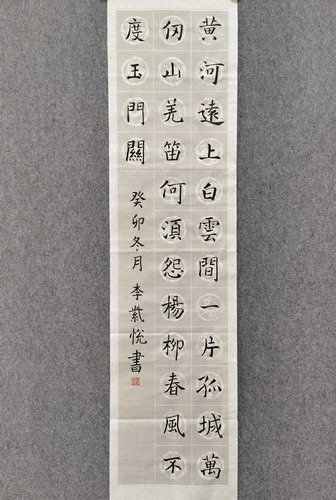 黃河遠上白雲間一片孤城萬
仞山羌笛何須怨楊柳春風不
度玉門關
癸卯冬月李紫悅書